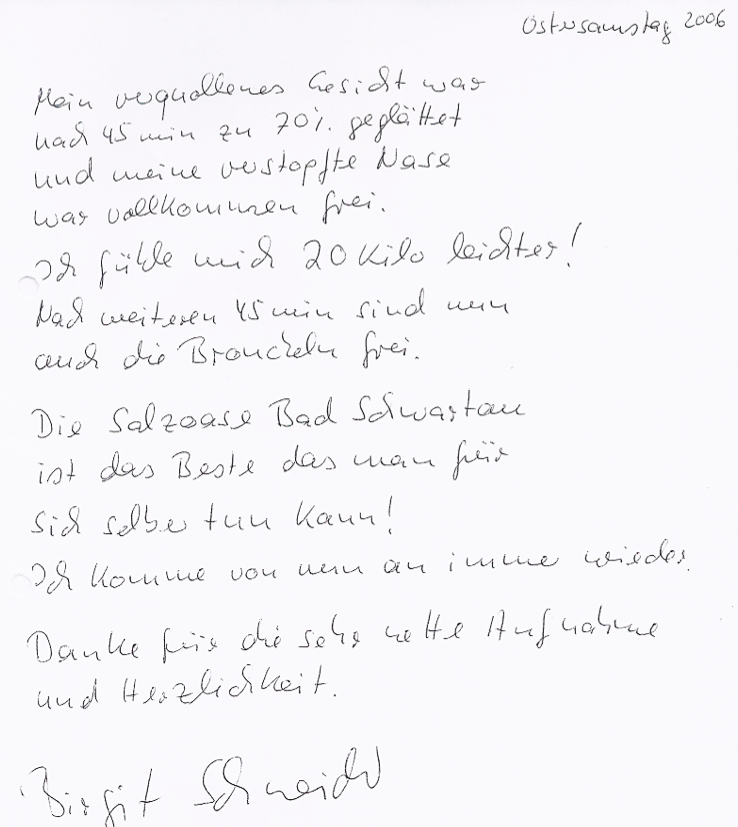 Ostersamstag 2006
Mein verquollenes Gesicht war
nach 45 min zu 70%. geglättet
und meine verstopfte Nase
war vollkommen frei.
Ich fühle mich 20 Kilo leichter!
Nach weiteren 45 min sind nun
auch die Bronchien frei.
Die Salzoase Bad Schwartau
ist das Beste das man für
sich selber tun kann!
Ich komme von nun an immer wieder.
Danke für die sehr nette Aufnahme
und Herzlichkeit.
Birgit Schneider